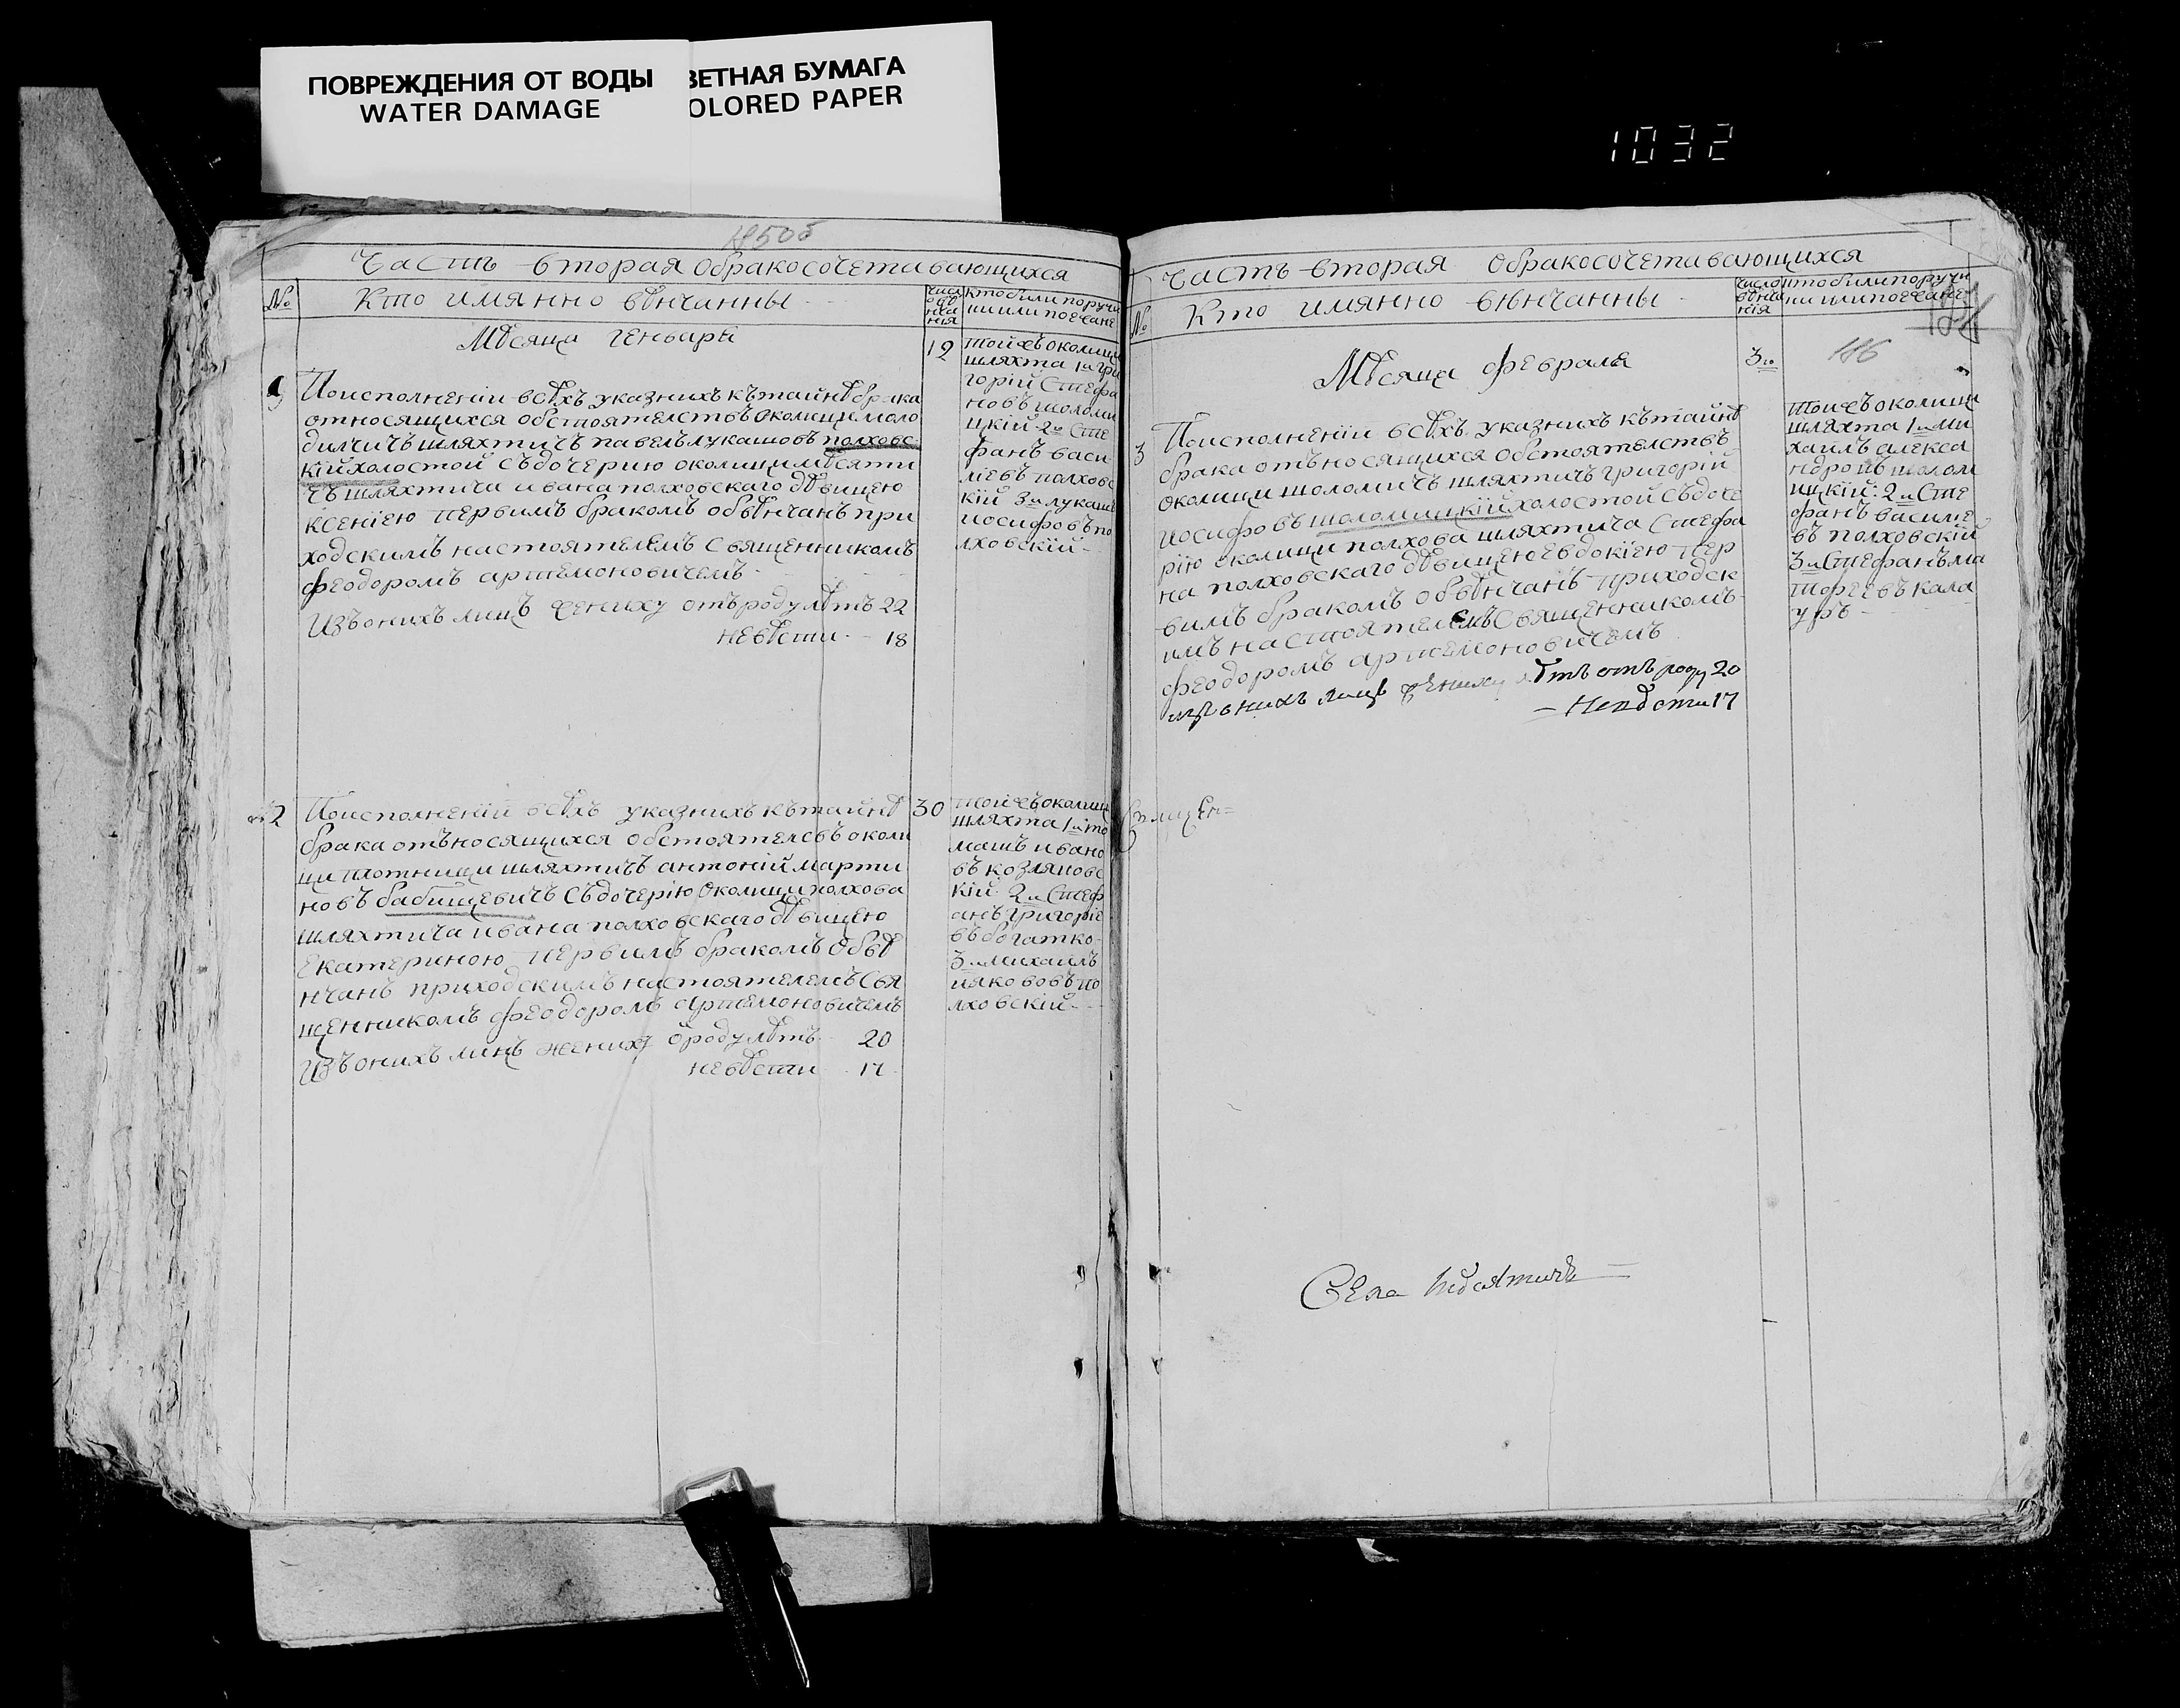 ПОВРЕЖДЕНИЯ ОТ ВОДЫ
WATER DAMAGE
ВЕТНАЯ БУМАГА
OLORED PAPER
1032
Часть вторая обракосочетавающихся
№
Кто имянно вѣнчанны
ктобили поручи
Мѣсяца генваря
1
Поисполненіи всѣхъ указнихъ кътайнѣ брака
относящихся обстоятелствъ околици моло
дилчичъ шляхтичъ павелъ лукашовъ полховс
кій холостой съдочерию околици мѣсяти
чъ шляхтича ивана полховскаго дѣвицею
ксенією первимъ бракомъ обвѣнчанъ при
ходскимъ настоятелемъ священникомъ
феодоромъ артемоновичемъ
Изъ онихъ лицъ жениху отъроду лѣтъ 22
невѣсти 18
12
тойжъ околици
шляхта 1й гри
горій Стефа
новъ шоломи
цкій 2й Сте
фанъ васи
лієвъ полховс
кій 3й лукашъ
иосифовъ по
лховскій
2
Поисполненій всѣхъ указнихъ кътайнѣ
брака отъносящихся обстоятелсвъ околи
ци плотници шляхтичъ антоній марти
новъ бабищевичъ съдочерію околици полхова
шляхтича ивана полховскаго дѣвицею
Екатериною первимъ бракомъ Обвѣ
нчанъ приходскимъ настоятелемъ Свя
щенникомъ феодоромъ артемоновичемъ
Изъ онихъ лицъ жениху ѿроду лѣтъ 20
невѣсти 17
30
тойжъ околици
шляхта 1й то
машъ ивано
въ козляковс
кій 2й Стеф
анъ григоріе
въ богатко
3й михаилъ
иаковъвъ по
лховскій
Часть вторая Обракосочетавающихся
№
Кто имянно вѣнчанны
Число
вѣнча
нія
ктобили поручи
186
Мѣсяца февраля
3
Поисполненіи всѣхъ указнихъ кътайнѣ
брака отъносящихся обстоятелствъ
околици шоломичъ шляхтичъ григорій
иосифовъ шоломицкій холостой съдоче
рію околици полхова шляхтича Стефа
на полховскаго дѣвицею евдокією пер
вимъ бракомъ обвѣнчанъ приходск
имъ настоятелемъ Священникомъ
феодоромъ артемоновичемъ
изъ онихъ лицъ жениху лѣтъ отъ роду 20
Невѣсти 17
3го
тойжъ околици
шляхта 1й ми
хаилъ алекса
ндровъ шолом
ицкій 2й Сте
фанъ василіе
въ полховскій
3й Стефанъ ма
тфеевъ кала
уръ